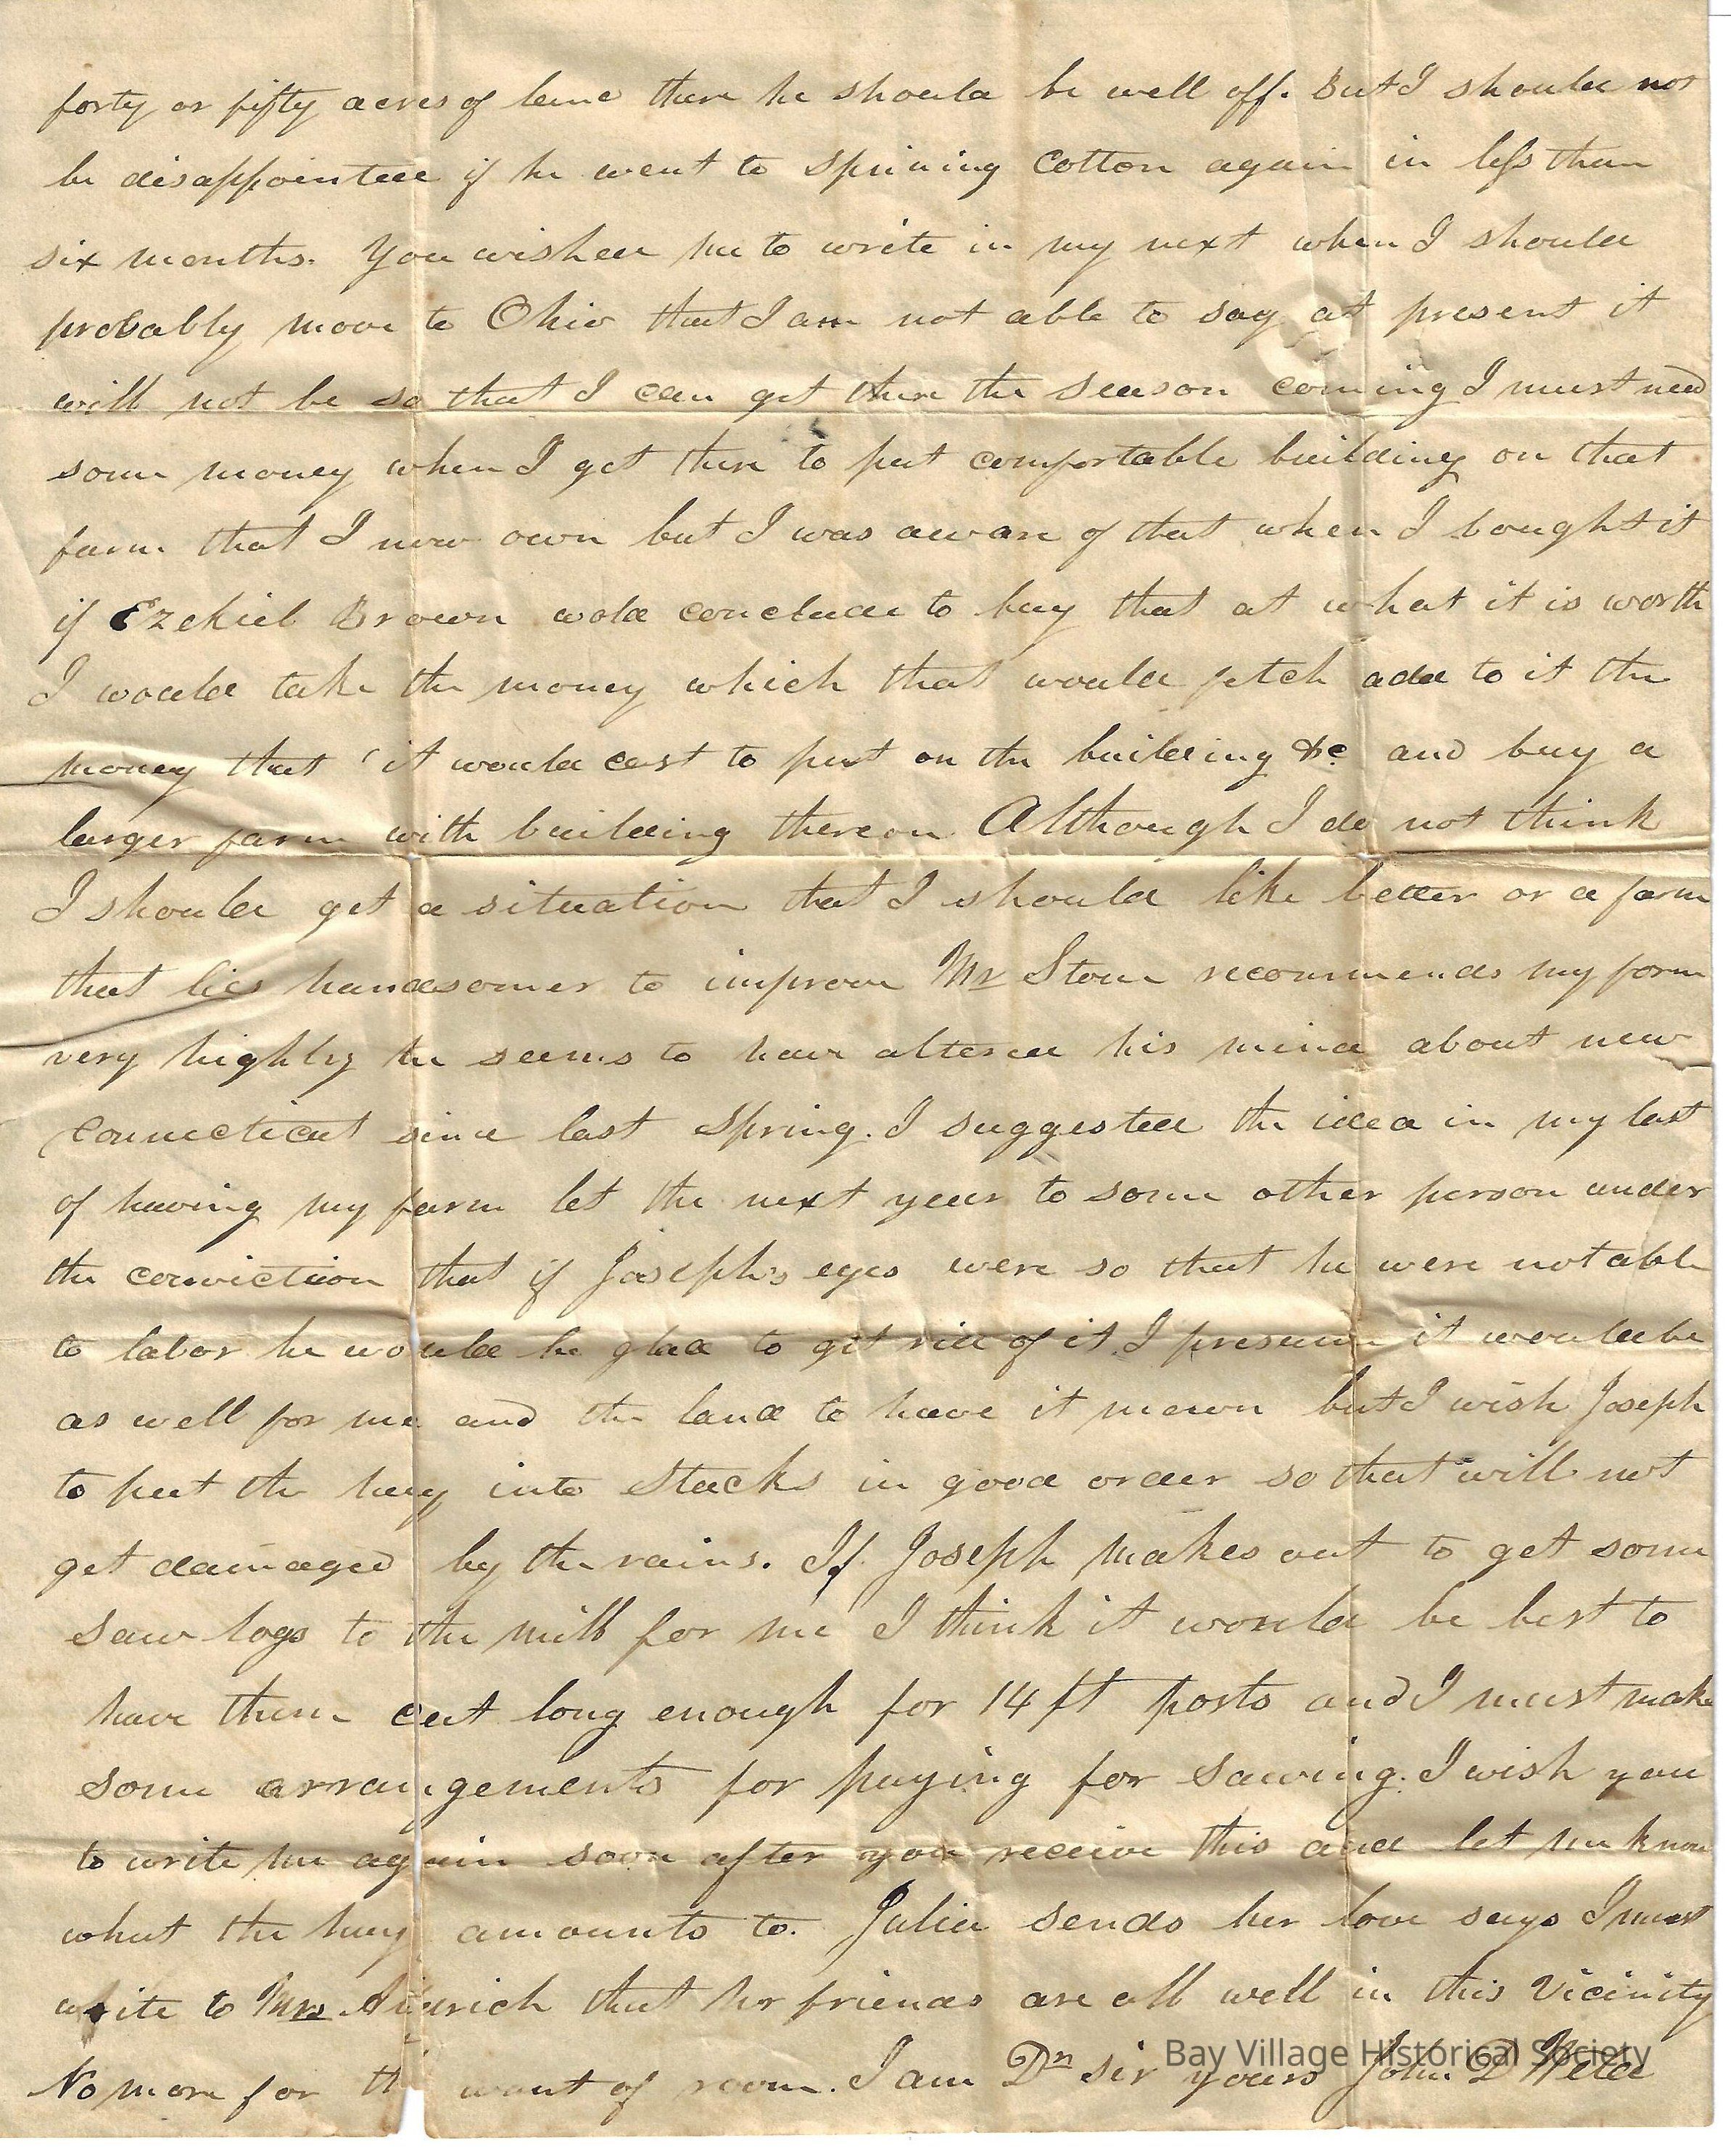 forty or fifty acres of land there he should be well off. But I should not
be disappointed if he went to spining Cotton again in less than
six months. You wished me to write in my next when I should
probably move to Ohio that I am not able to say at present it
will not be so that I can get there the season coming I must need
some money when I get there to put comfortable building on that
farm that I now own but I was aware of that when I bought it
if Ezekiel Brown wold conclude to buy that at what it is worth
I would take the money which that would fetch add to it the
money that it would cost to put on the building &c and buy a
larger farm with building thereon Although I do not think
I should get a situation that I should like better or a farm
that lies handsomer to improve Mr Stow recommends my farm
very highly he seems to have altered his mind about new
Connecticut since last Spring. I suggested the idea in my last
of having my farm let the next year to some other person under
the conviction that if Joseph's eyes were so that he were not able
to labor he would be glad to git rid of it I presume it would be
as well for me and the land to have it mown but I wish Joseph
to put the hay into Stacks in good order so that will not
get damaged by the rains. If Joseph makes out to get some
Saw logs to the mill for me I think it would be best to
have them cut long enough for 14 ft posts and I must make
some arrangements for paying for Sawing. I wish you
to write me again soon after you receive this and let me know
what the hay amounts to. Julia sends her love says I must
write to Mrs that her friends are all well in this Vicinity
No more for want of room. I am Dr Sir yours John D
Bay Village Historical Society